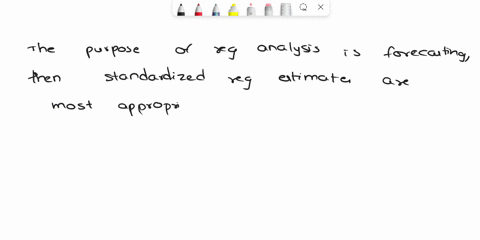 The purpose of reg analysis is forecasting,
then standardized reg estimates are
most appropri